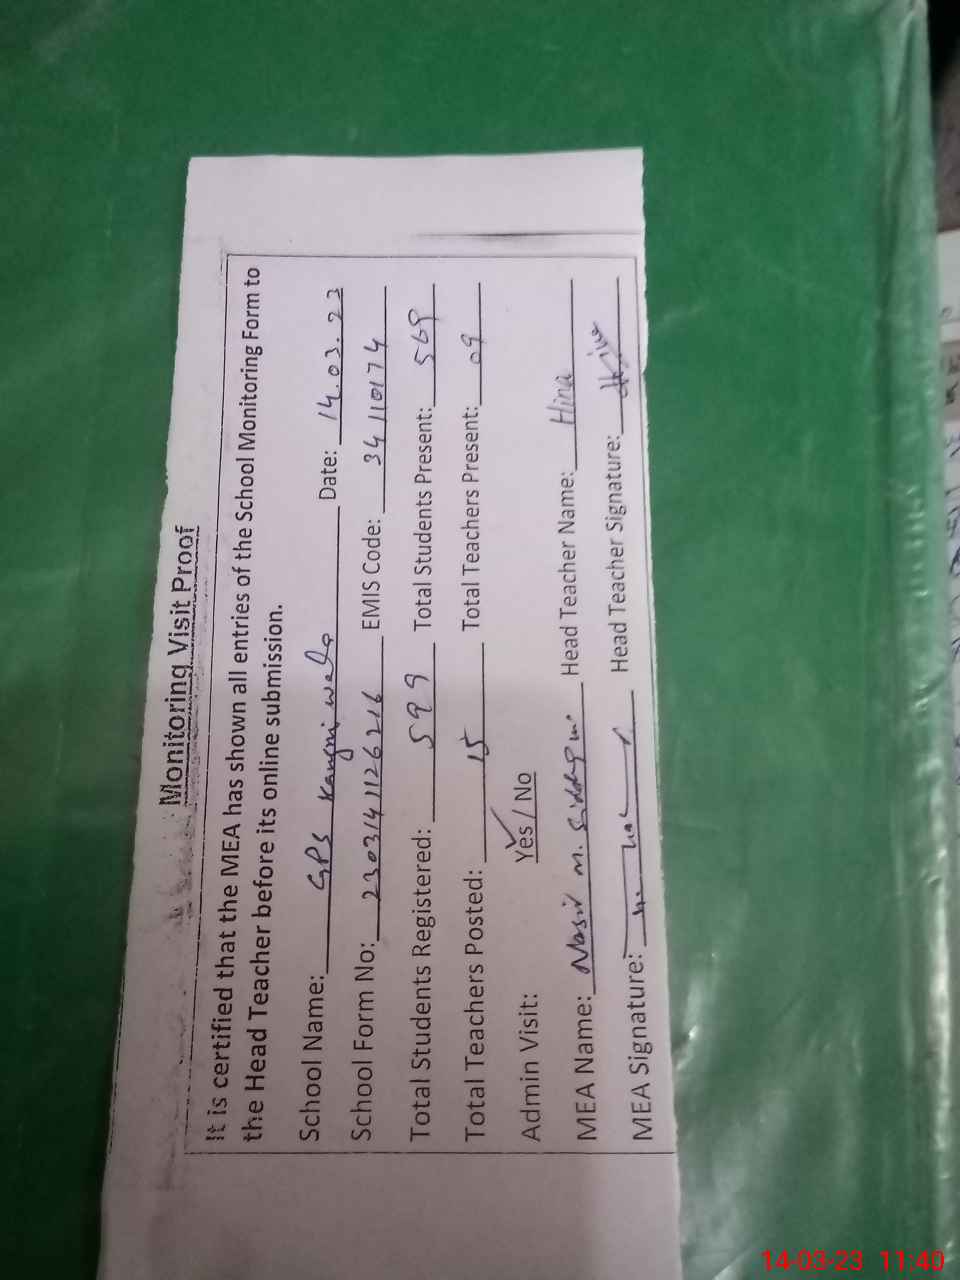 Monitoring Visit Proof
It is certified that the MEA has shown all entries of the School Monitoring Form to
the Head Teacher before its online submission.
School Name: GPS Kangni wala Date: 14.03.23
School Form No: 2303141126216 EMIS Code: 34110174
Total Students Registered: 599 Total Students Present: 569
Total Teachers Posted: 15 Total Teachers Present: 09
Admin Visit: Yes / No
MEA Name: Nasir M. Head Teacher Name: Hina
MEA Signature: Head Teacher Signature:
14-03-23 11:40